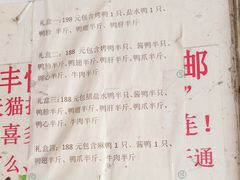 礼盒一：198 元包含烤鸭 1 只、盐水鸭 1 只、
鸭胗 半斤、鸭翅半斤、鸭肝半斤
礼盒二：168 元包含烤鸭半只、酱鸭半只、
鸭胗半斤、鸭翅半斤、鸭肝半斤、鸭爪半斤、
鸭心半斤、牛肉半斤
礼盒三：188 元包括盐水鸭半只、酱鸭半只、
鸭胗半斤、鸭翅半斤、鸭肝半斤、鸭爪半斤、
鸭心半斤、牛肉半斤
礼盒四：188 元包含麻鸭 1 只、酱鸭 1 只、
鸭翅半斤、鸭肝半斤、鸭爪半斤
丰
邮
天猫
喜
连！
多
么、
通